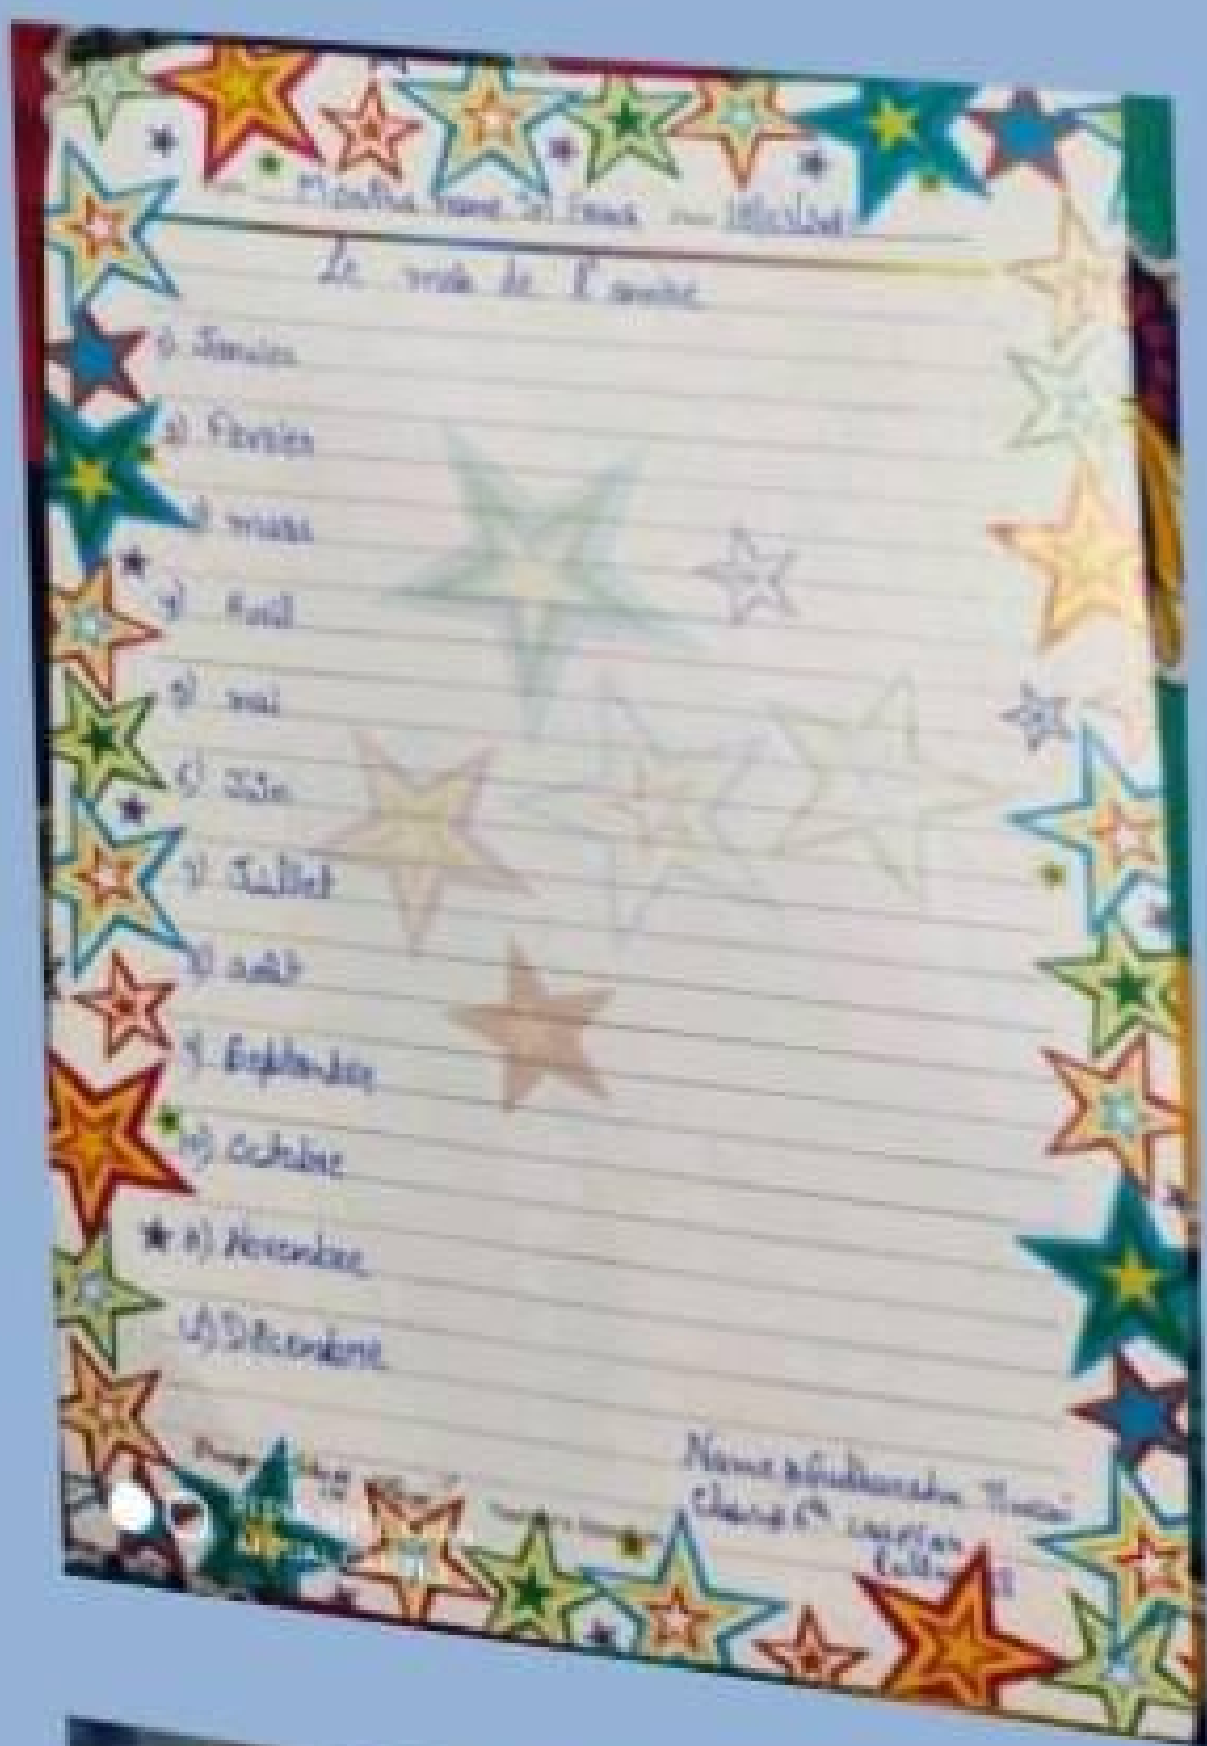 Months name In French
Le mois de l'année
1) Janvier
2) Février
3) mars
4) Avril
5) mai
6) Juin
7) Juillet
8) août
9) Septembre
10) Octobre
11) Novembre
12) Décembre
Name
Class 6th